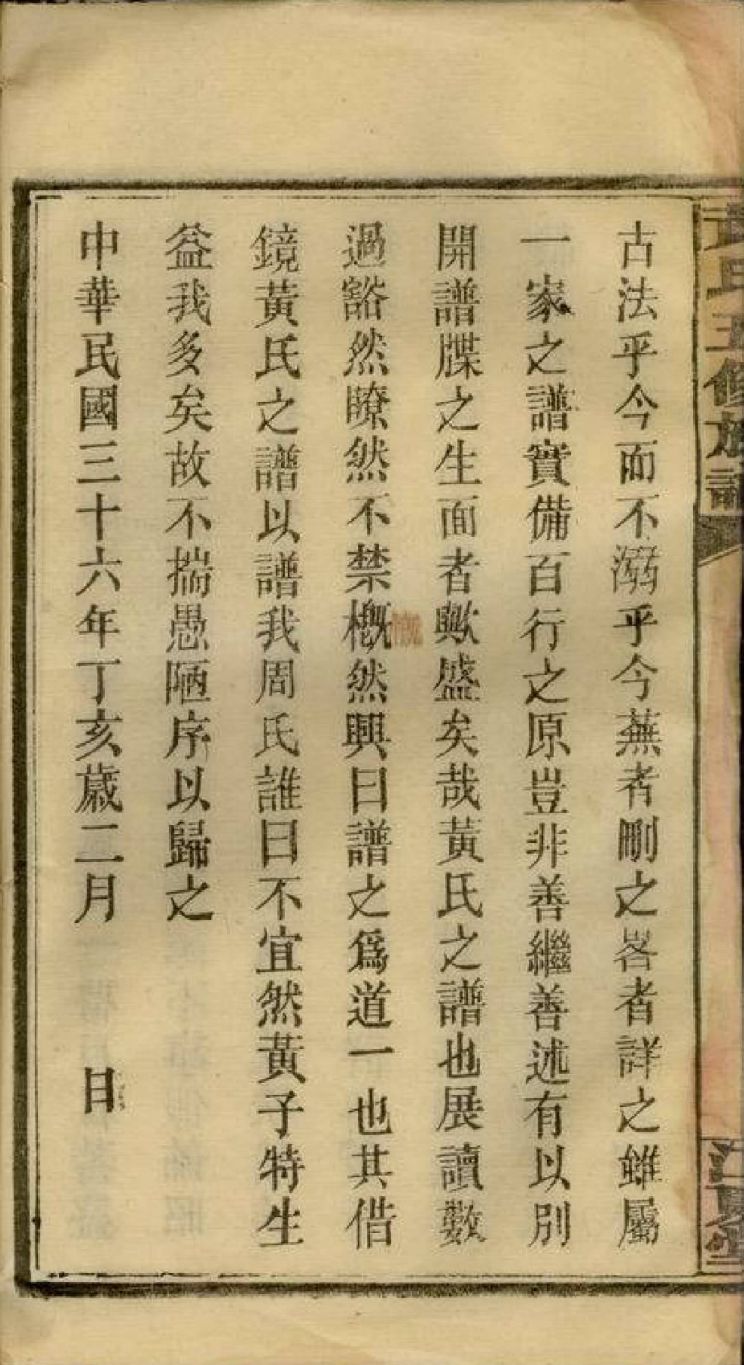 黃氏五修族譜
江夏堂
古法乎今而不溺乎今蕪者刪之畧者詳之雖屬
一家之譜實備百行之原豈非善繼善述有以別
開譜牒之生面者歟盛矣哉黃氏之譜也展讀數
過豁然瞭然不禁概然興曰譜之爲道一也其借
慨
鏡黃氏之譜以譜我周氏誰曰不宜然黃子特生
益我多矣故不揣愚陋序以歸之
中華民國三十六年丁亥歲二月 日